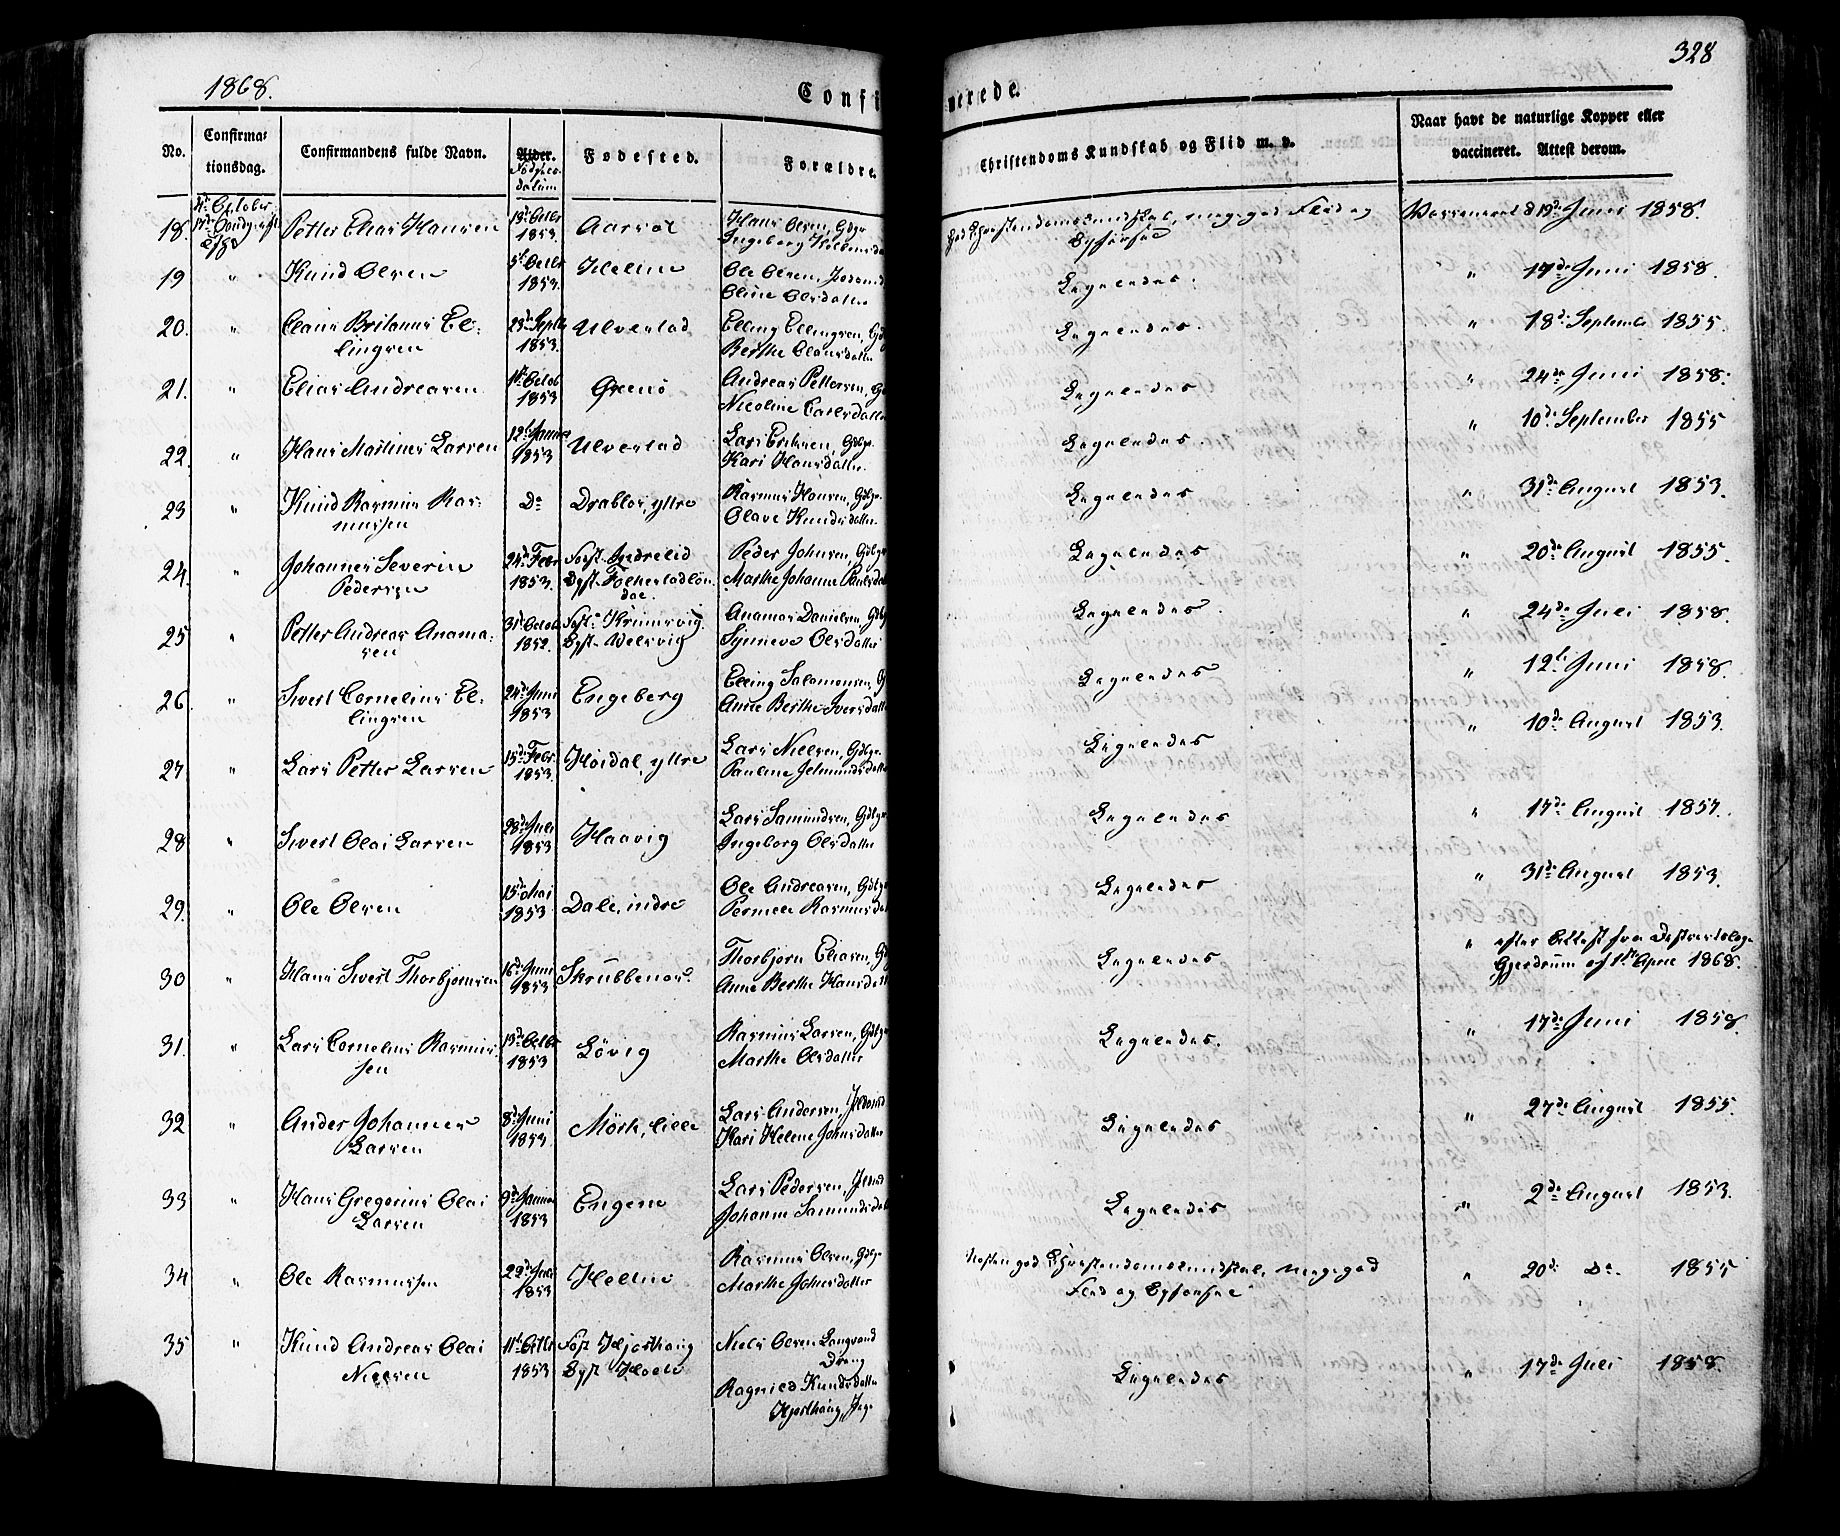 1868.
328
Confi
nerede.
No.
Confirma-
tionsdag.
Confirmandens fulde Navn.
Alder.
Födsels-
datum
Fødested.
Forældre.
Christendoms Kundskab og Flid m. v.
Naar havt de naturlige Kopper eller
vaccineret. Attest derom.
18. 4de October Petter Elias Hansen 13de Octbr 1853. Aarsöt Hans Olsen, Gdbr Ingeborg
God Christendomskundskab, meget god Flid og
Opförsel
Vaccineret d 19de Juni 1858.
19 " Knud Olsen 5te Octbr 1853. Helsne Ole Olsen,
Oline Olsdatter
Ligeledes. " 17de Juni 1858.
20. " Claus Britanus El-
lingsen 23de Septb 1853. Ulvestad Elling Ellingsen, Gdb
Berthe Clausdatter
Ligeledes. " 18de Septemb 1855.
21. " Elias Andreasen Octob 1853 Grönö Andreas Pettersen, G
Nicoline Carlsdatter
Ligeledes " 24de Juni 1858.
22. " Hans Martinus Larsen 12te Januar 1853 Ulvestad Lars Eriksen, Gdbr.
Kari Hansdatter
Ligeledes. " 10de September 1855
23 " Knud Rasmus Ras-
mussen Do Drablos, ytre Rasmus Hansen, Gdbr.
Olave Knudsdatter
Ligeledes " 31de August 1853.
24. " Johannes Severin
Pedersen 24de Febr 1853. Föst. Indrelid
Opst. Folkestadlön
dae. Peder Johnsen, Gdbr
Marthe Johanne Paulsdat
Ligeledes " 20de August 1855.
25 " Petter Andreas Anama-
sen 31te Octob 1852. Föst. Krumsvig.
Opst. Velsvig Anamas Danielsen, Gdb
Synneve Olsdatter
Ligeledes. " 24de Juli 1858.
26. " Sivert Cornelius El-
lingsen 24de Juni 1853 Engeberg Elling Salomonsen, G
Anne Berthe Iversdatt
Ligeledes " 12te Juni 1858.
27 " Lars Petter Larsen 15de Febr. 1853. Höidal, ytre Lars Nielsen, Gdbr.
Pauline Jelmundsdatt
Ligeledes " 10de August 1853.
28 " Sivert Olai Larsen 28de Juli 1853 Haavig Lars Samundsen, Gdbr
Ingeborg Olsdatter
Ligeledes " 17de August 1857.
29. " Ole Olsen 15de Mai 1853. Dale, indre Ole Andreasen, Gdbr
Pernele Rasmusdat
Ligeledes " 31de August 1853.
30 " Hans Sivert Thorbjornsen 16de Juni 1853 Skrubbenæs Thorbjorn Eliasen, G
Anne Berthe Hansdatt
Ligeledes " efter Attest fra Districtslæge
Gjerdrum af 1ste April 1868.
31. " Lars Cornelius Rasmus
sen 13de Octbr 1853 Lövig Rasmus Larsen, Gdbr
Marthe Olsdatter
Ligeledes. " 17de Juni 1858.
32 " Anders Johannes
Larsen 8de Juni 1853. Mörk, lille Lars Andersen,
Kari Helene Johnsdatter
Ligeledes " 27de August 1855.
33 " Hans Gregorius Olai
Larsen 9de Januar 1853 Engene Lars Pedersen,
Johanne Samundsdatt
Ligeledes " 2de August 1853.
34 " Ole Rasmussen 29de Juli 1853 Helsne Rasmus Olsen, Gdbr
Marthe Johnsdatter
Næsten god Christendomskundskab, meget god
Flid og Opförsel " 20de Do. 1855
35 " Knud Andreas Olai
Nielsen 11te Octbr 1853 Föst. Hjorthaug
Opst. Hovde Niels Olsen Langvand
Dreng
Ragnild Knudsdatter
Hjorthaug, Pige
Ligeledes " 17de Juli 1858.